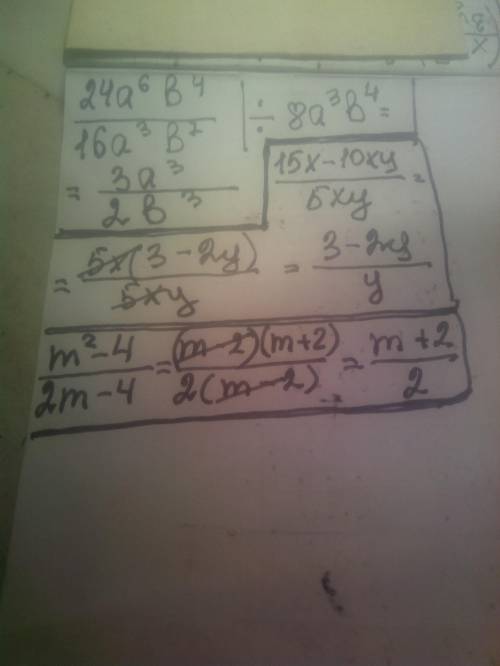 24a⁶b⁴ / 16a³b⁷ | ÷ 8a³b⁴ =
= 3a³ / 2b³
15x-10xy / 5xy =
= 5x(3-2y) / 5xy = 3-2y / y
m²-4 / 2m-4 = (m-2)(m+2) / 2(m-2) = m+2 / 2